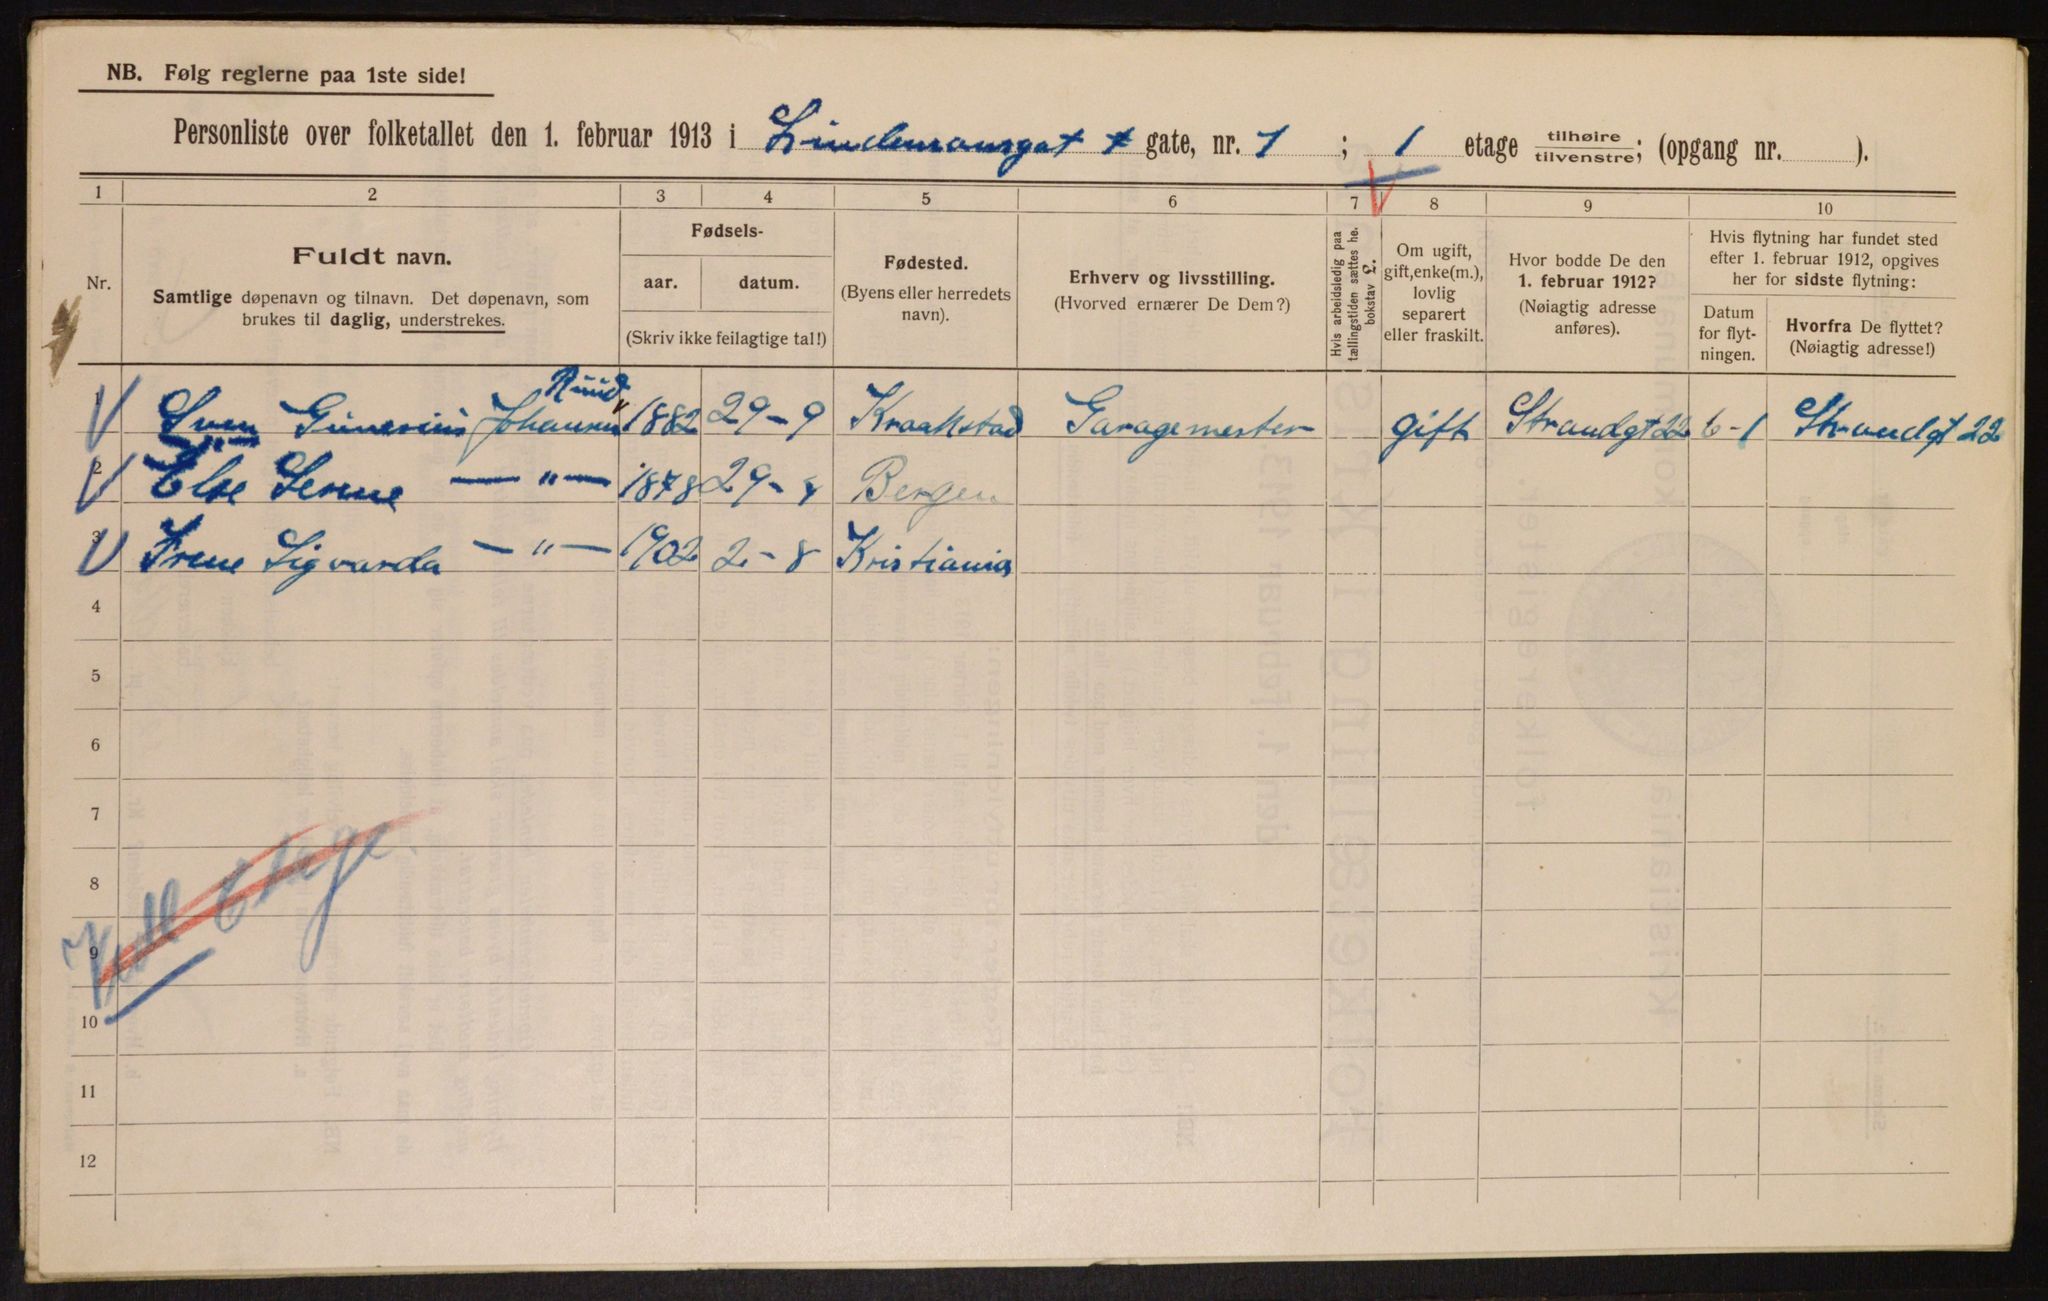 NB. Følg reglerne paa 1ste side!
Personliste over folketallet den 1. februar 1913 i Lindemansgat gate, nr. 1 ; 1 etage tilhøire tilvenstre; (opgang nr. ).
1 2 3 4 5 6 7 8 9 10
Nr.
Fuldt navn.
Samtlige døpenavn og tilnavn. Det døpenavn, som
brukes til daglig, understrekes.
Fødsels-
aar. datum.
(Skriv ikke feilagtige tal!)
Fødested.
(Byens eller herredets
navn).
Erhverv og livsstilling.
(Hvorved ernærer De Dem?)
Hvis arbeidsledig paa
tællingstiden sættes he.
bokstav £.
Om ugift,
gift, enke(m.),
lovlig
separert
eller fraskilt.
Hvor bodde De den
1. februar 1912?
(Nøiagtig adresse
anføres).
Hvis flytning har fundet sted
efter 1. februar 1912, opgives
her for sidste flytning:
Datum
for flyt-
ningen.
Hvorfra De flyttet?
(Nøiagtig adresse!)
Ruud
1 Sven Gunerius Johansen 1882 29-9 Kraakstad Garagemester gift Strandgt 22 6-1 Strandgt 22
2 Else Serene — " — 1878 29-8 Bergen
3 Irene Sigvarda — " — 1902 2-8 Kristiania
4
5
6
7
8
9
10
11
12